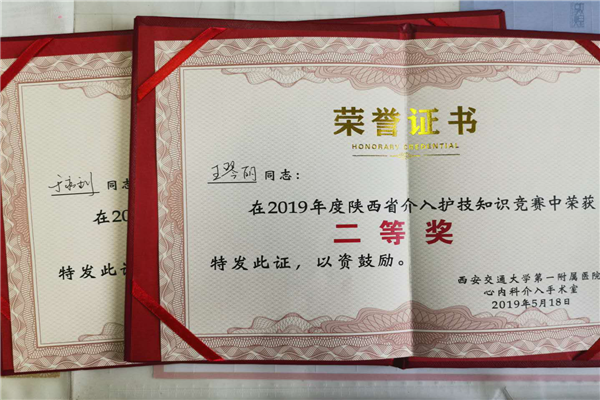 荣誉证书
HONORARY CREDENTIAL
王琴丽 同志：
在2019年度陕西省介入护技知识竞赛中荣获
二等奖
特发此证，以资鼓励。
西安交通大学第一附属医院
心内科介入手术室
2019年5月18日
同志
在20
特发此证